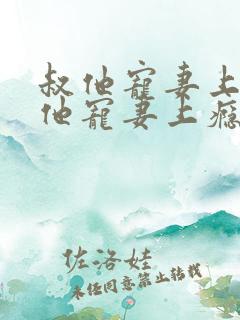 叔他寵妻上
他寵妻上癮
佐洛娃
未經同意禁止轉載